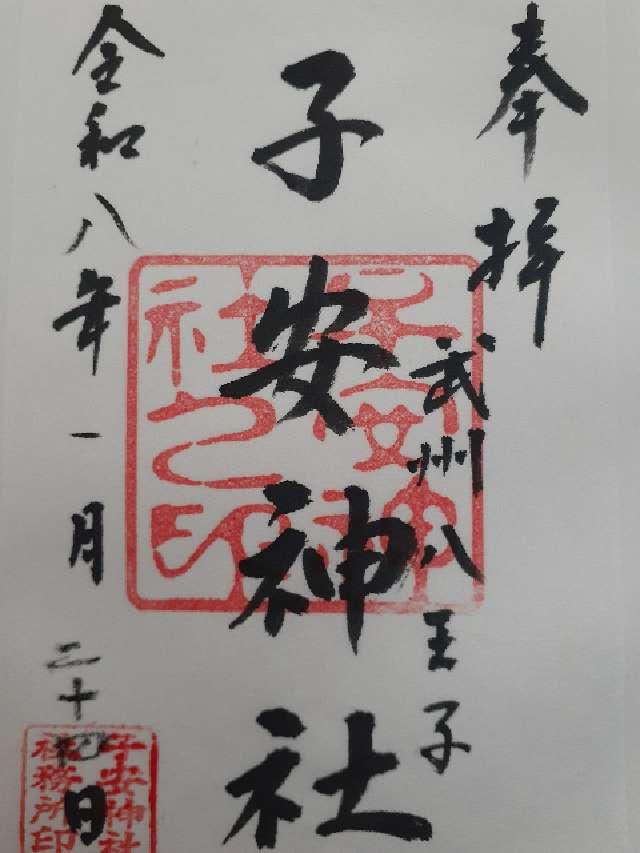 奉拝
武州八王子
子安神社
令和八年一月二十 日
子安神社之印
子安神社
社務所印